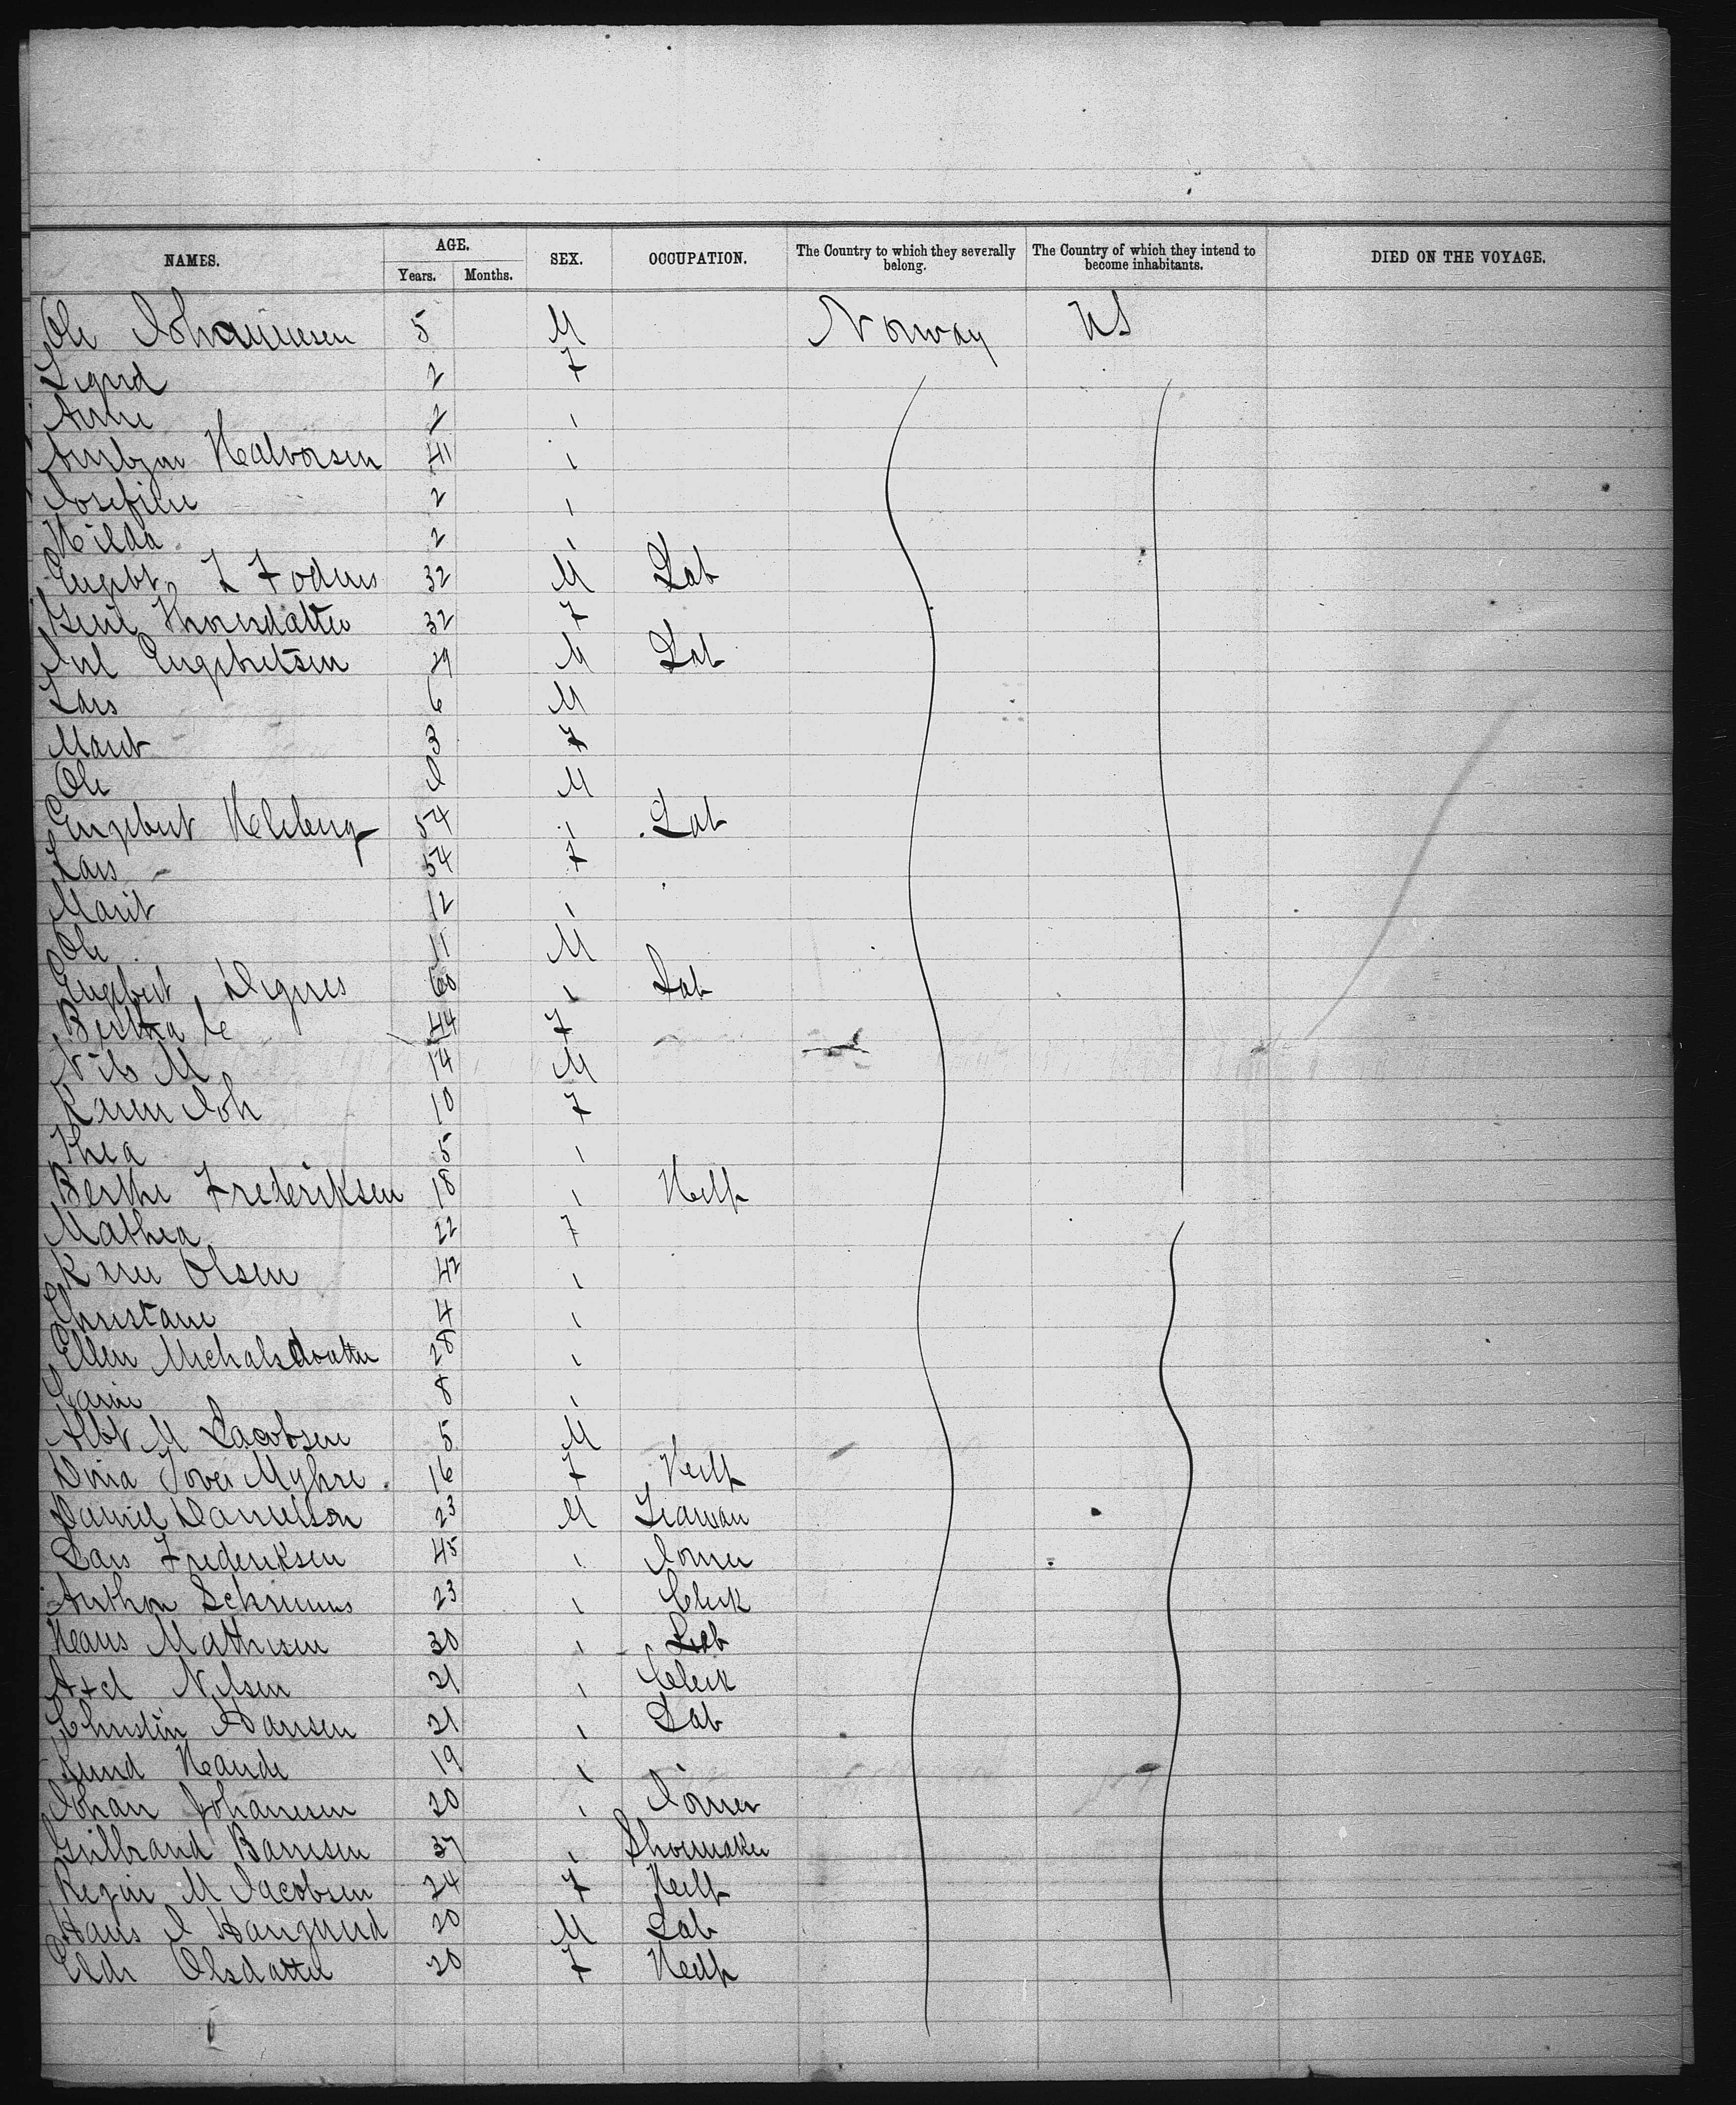 NAMES. AGE. SEX. OCCUPATION. The Country to which they severally belong. The Country of which they intend to become inhabitants. DIED ON THE VOYAGE.
Years. Months.
Ole Johannesen 5 M Norway US
Sigurd 2 F
Anne 2 "
Halvorsen 41 "
Josefine 2 "
Hilda 2 "
Engebt. L Fodnes 32 M Lab
Thorsdatter 32 F
Engebretsen 29 M Lab
Lars 6 M
Marit 3 F
Ole M
Engebret Kleberg 54 " Lab
Lars 54 F
Marit 12 "
Ole 11 M
Engebret Dignes 60 " Lab
Bertha C 44 F
Nils M 14 M
Karen Joh 10 F
Thea 5 "
Berthe Frederiksen 18 " Help
Mathea 22 F
Karen Olsen 42 "
Christane 4 "
Ellen Michalsdvatter 28 "
8 "
Albt M Jacobsen 5 M
Dina Myhre 16 F Help
Daniel Danielson 23 M Seaman
Lars Frederiksen 45 " Joiner
Anthon 23 " Clerk
Hans Mathisen 30 " Lab
Axel Nilsen 21 " Clerk
Christin Hansen 21 " Lab
Haande 19 "
Johan Johanesen 20 " Joiner
Gulbrand 37 " Shoemaker
M Jacobsen 24 F Help
Hans J 20 M Lab
Olsdatter 20 F Help